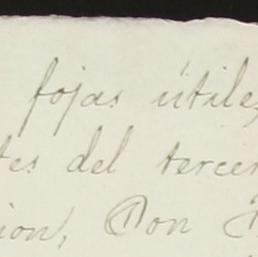 fojas útiles
tes del tercer
ion, Don